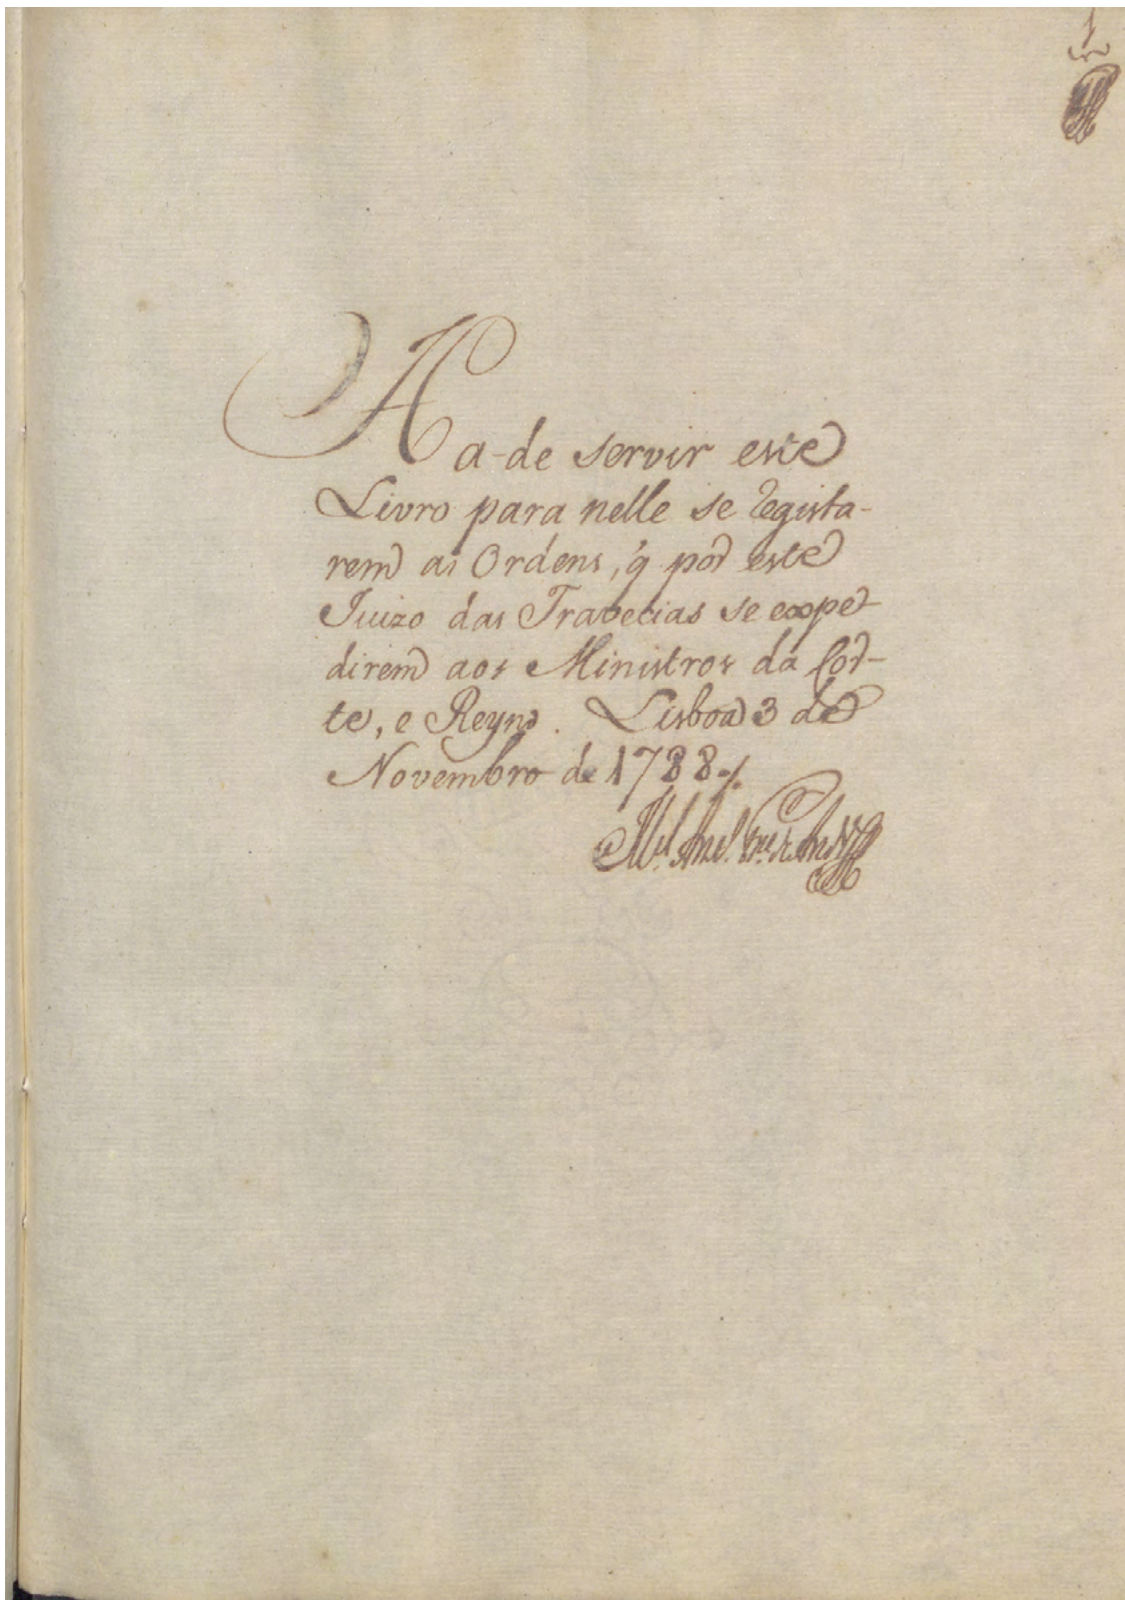 1
Ha-de servir este
Livro para nelle se Regista-
rem as Ordens, q̃ por este
Juizo das Travecias se expe-
direm aos Ministros da Cor-
te, e Reyno. Lisboa 3 de
Novembro de 1788 ./.